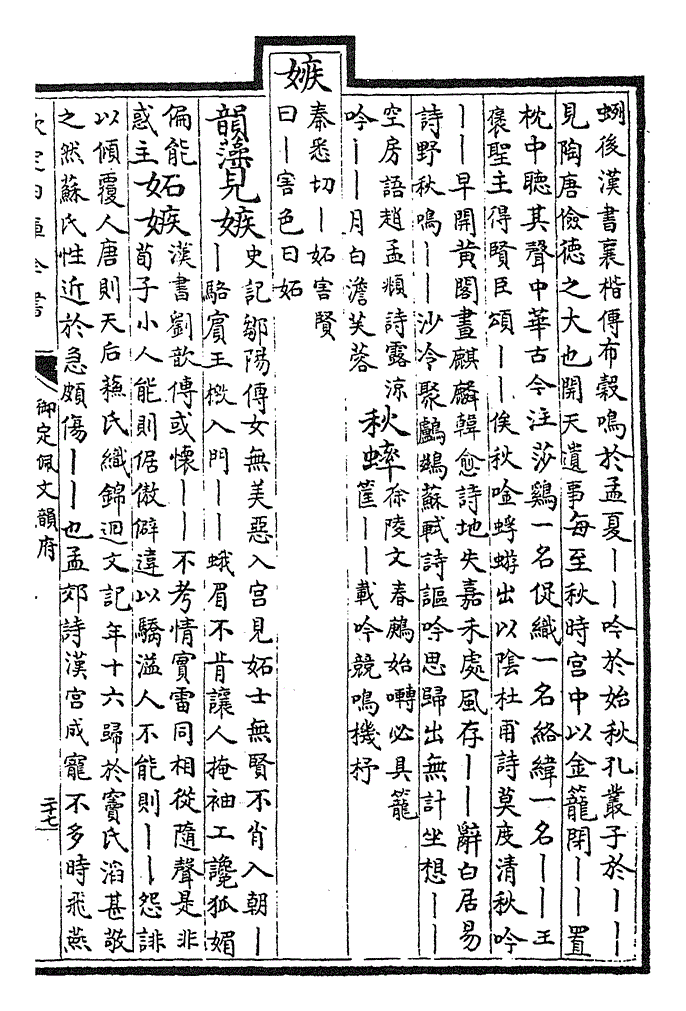 蛚後漢書襄楷傳布穀鳴於孟夏丨丨吟於始秋孔叢子於丨丨
見陶唐儉德之大也開天遺事每至秋時宫中以金籠閉丨丨置
枕中聽其聲中華古今注莎鷄一名促織一名絡緯一名丨丨王
褒聖主得賢臣頌丨丨俟秋唫蜉蝣出以陰杜甫詩莫度清秋吟
丨丨早開黄閣畫麒麟韓愈詩地失嘉禾處風存丨丨辭白居易
詩野秋鳴丨丨沙冷聚鸕鷀蘇軾詩謳吟思歸出無計坐想丨丨
空房語趙孟頫詩露涼
吟丨丨月白澹芙蓉
秋蟀
徐陵文春鷅始囀必具籠
筐丨丨載吟競鳴機杼
嫉
秦悉切丨妬害賢
曰丨害色曰妬
韻藻見嫉
史記鄒陽傳女無美惡入宫見妬士無賢不肖入朝丨
丨駱賓王檄入門丨丨蛾眉不肯讓人掩袖工讒狐媚
偏能
惑主
妬嫉
漢書劉歆傳或懷丨丨不考情實雷同相從隨聲是非
荀子小人能則倨傲僻違以驕溢人不能則丨丨怨誹
以傾覆人唐則天后蘓氏織錦迴文記年十六歸於竇氏滔甚敬
之然蘇氏性近於急頗傷丨丨也孟郊詩漢宫成寵不多時飛燕
欽定四庫全書
御定佩文韻府
二十七